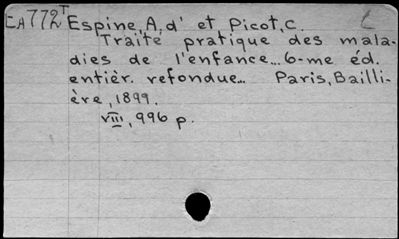 EA772T Espine, A. d' et Picot, C.
Traité pratique des mala-
dies de l'enfance... 6-me éd.
entièr. refondue... Paris, Bailli-
ère, 1899.
VIII, 996 p.